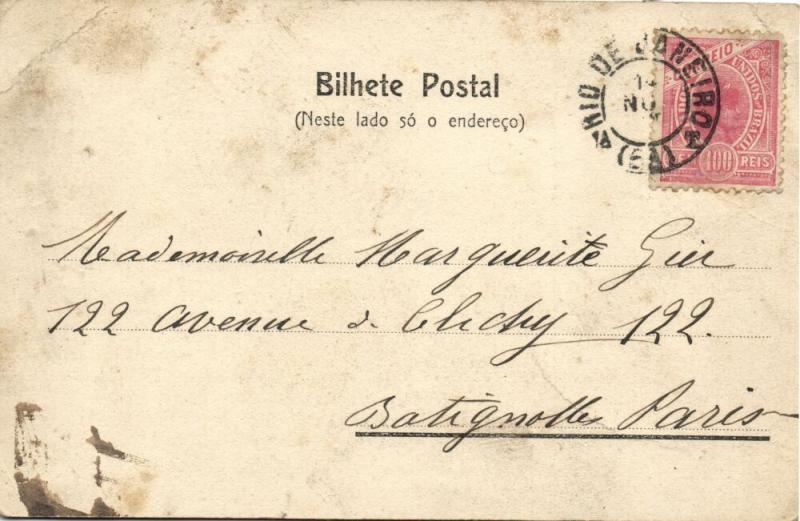 Bilhete Postal
(Neste lado só o endereço)
RIO DE JANEIRO
14
NO
CORREIO
UNIDOS BRAZIL
100 REIS
Mademoiselle Marguerite Gier
122 avenue de Clichy 122.
Batignolles Paris